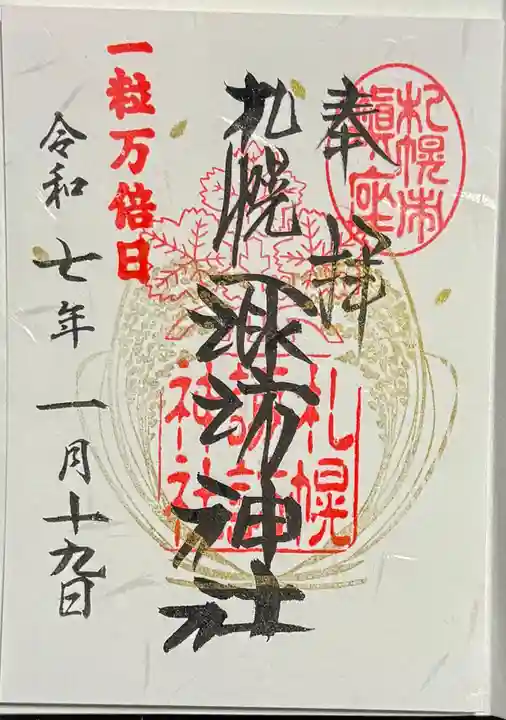 札幌市
鎮座
奉拝
札幌
諏訪
神社
札幌諏訪神社
一粒万倍日
令和七年一月十九日